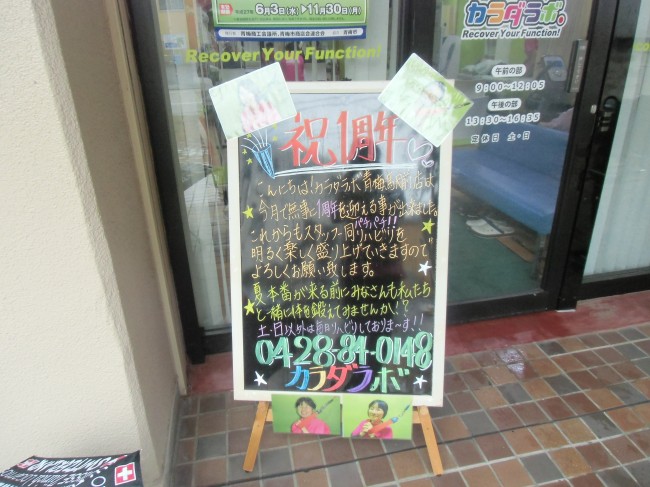 6月3日(水)→11月30日(月)
青梅商工会議所、青梅市商店会連合会
青梅市
Recover Your Function!
カラダラボ。
Recover Your Function!
午前の部
9:00~12:05
午後の部
13:30~16:35
定休日 土・日
祝、1周年
こんにちは!カラダラボ青梅
店は
今月で無事に1周年を迎える事が出来ました。
パチパチ!!
これからもスタッフ一同リハビリを
明るく楽しく盛り上げていきますので
よろしくお願い致します。
夏本番が来る前にみなさんも私たち
と一緒に体を鍛えてみませんか!?
土・日以外は毎日リハビリしておりま~す!!
0428-84-0148
カラダラボ